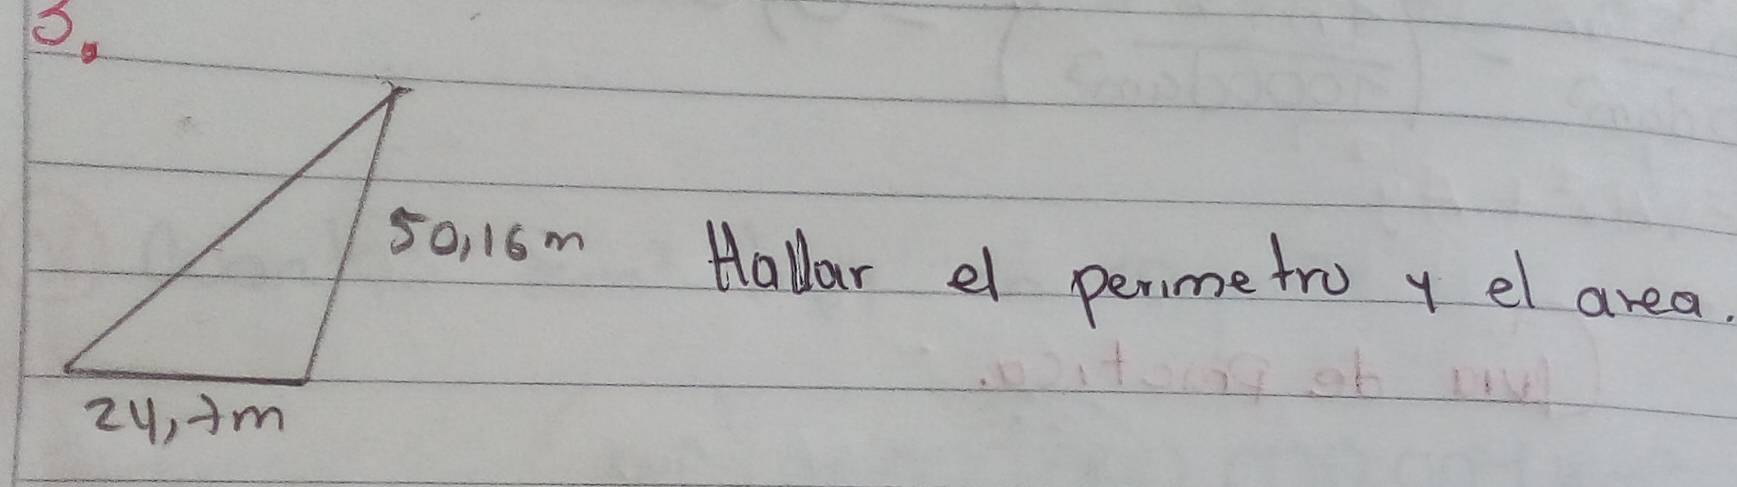 3.
50,16m
Hallar el perimetro y el area.
24,7m